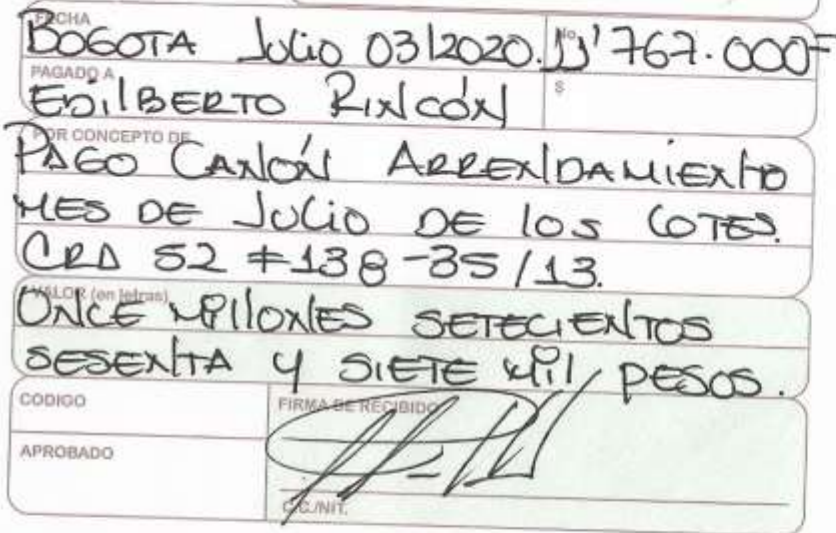 FECHA
BOGOTA Julio 03/2020. No. 11'767.000=
PAGADO A $
EDilBERTO RINCÓN
POR CONCEPTO DE
PAGO CANÓN ARRENDAMIENTO
MES DE JULIO DE los LOTES.
CRA 52 #138-35/13.
VALOR (en letras)
ONCE MillONES SETECIENTOS
SESENTA Y SIETE Mil PESOS.
CODIGO FIRMA DE RECIBIDO
APROBADO
C.C./NIT.